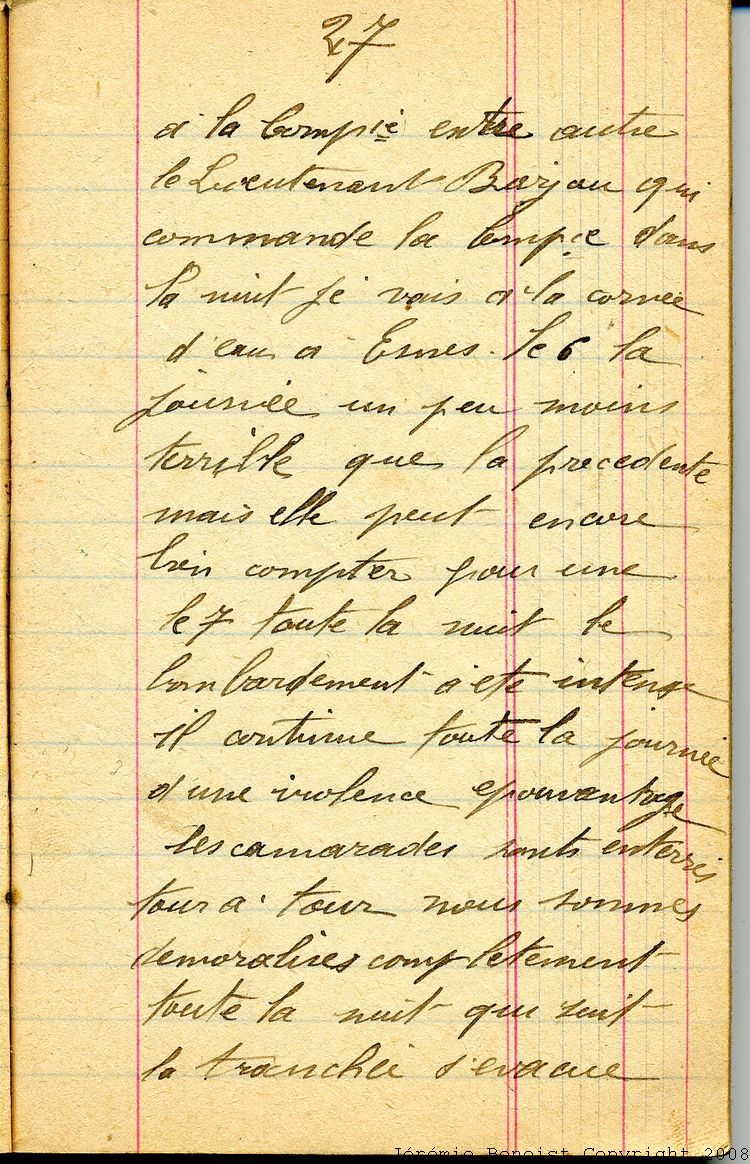 27
a la Compie entre autre
le Lieutenant Barjou qui
commande la Compie dans
la nuit je vais a la corvée
d'eau a Esnes. le 6 la
journée un peu moins
terrible que la precedente
mais elle peut encore
bien compter pour une
le 7 toute la nuit le
bombardement a ete intense
il continue toute la journée
d'une violence epouvantage
les camarades sonts enterrés
tour a tour nous sommes
demoralises completement
toute la nuit qui suit
la tranchée s'evacue
Jérémie Benoist Copyright 2008